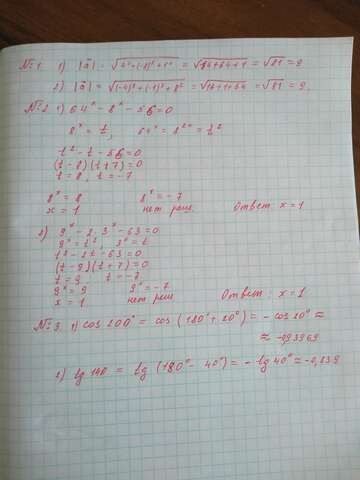 №1. 1) |a⃗| = √(4²+(-8)²+1²) = √(16+64+1) = √81 = 9
2) |a⃗| = √((-4)²+(-1)²+8²) = √(16+1+64) = √81 = 9.
№2. 1) 64ˣ - 8ˣ - 56 = 0
8ˣ = t, 64ˣ = 8²ˣ = t²
t² - t - 56 = 0
(t - 8)(t + 7) = 0
t = 8, t = -7
8ˣ = 8 8ˣ = -7
x = 1 нет реш. Ответ: x = 1
2) 9ˣ - 2·3ˣ - 63 = 0
9ˣ = t², 3ˣ = t
t² - 2t - 63 = 0
(t - 9)(t + 7) = 0
t = 9 t = -7
9ˣ = 9 9ˣ = -7
x = 1 нет реш Ответ: x = 1
№3. 1) cos 200° = cos (180° + 20°) = - cos 20° ≈
≈ -0,93969
2) tg 140 = tg (180° - 40°) = - tg 40° ≈ -0,839